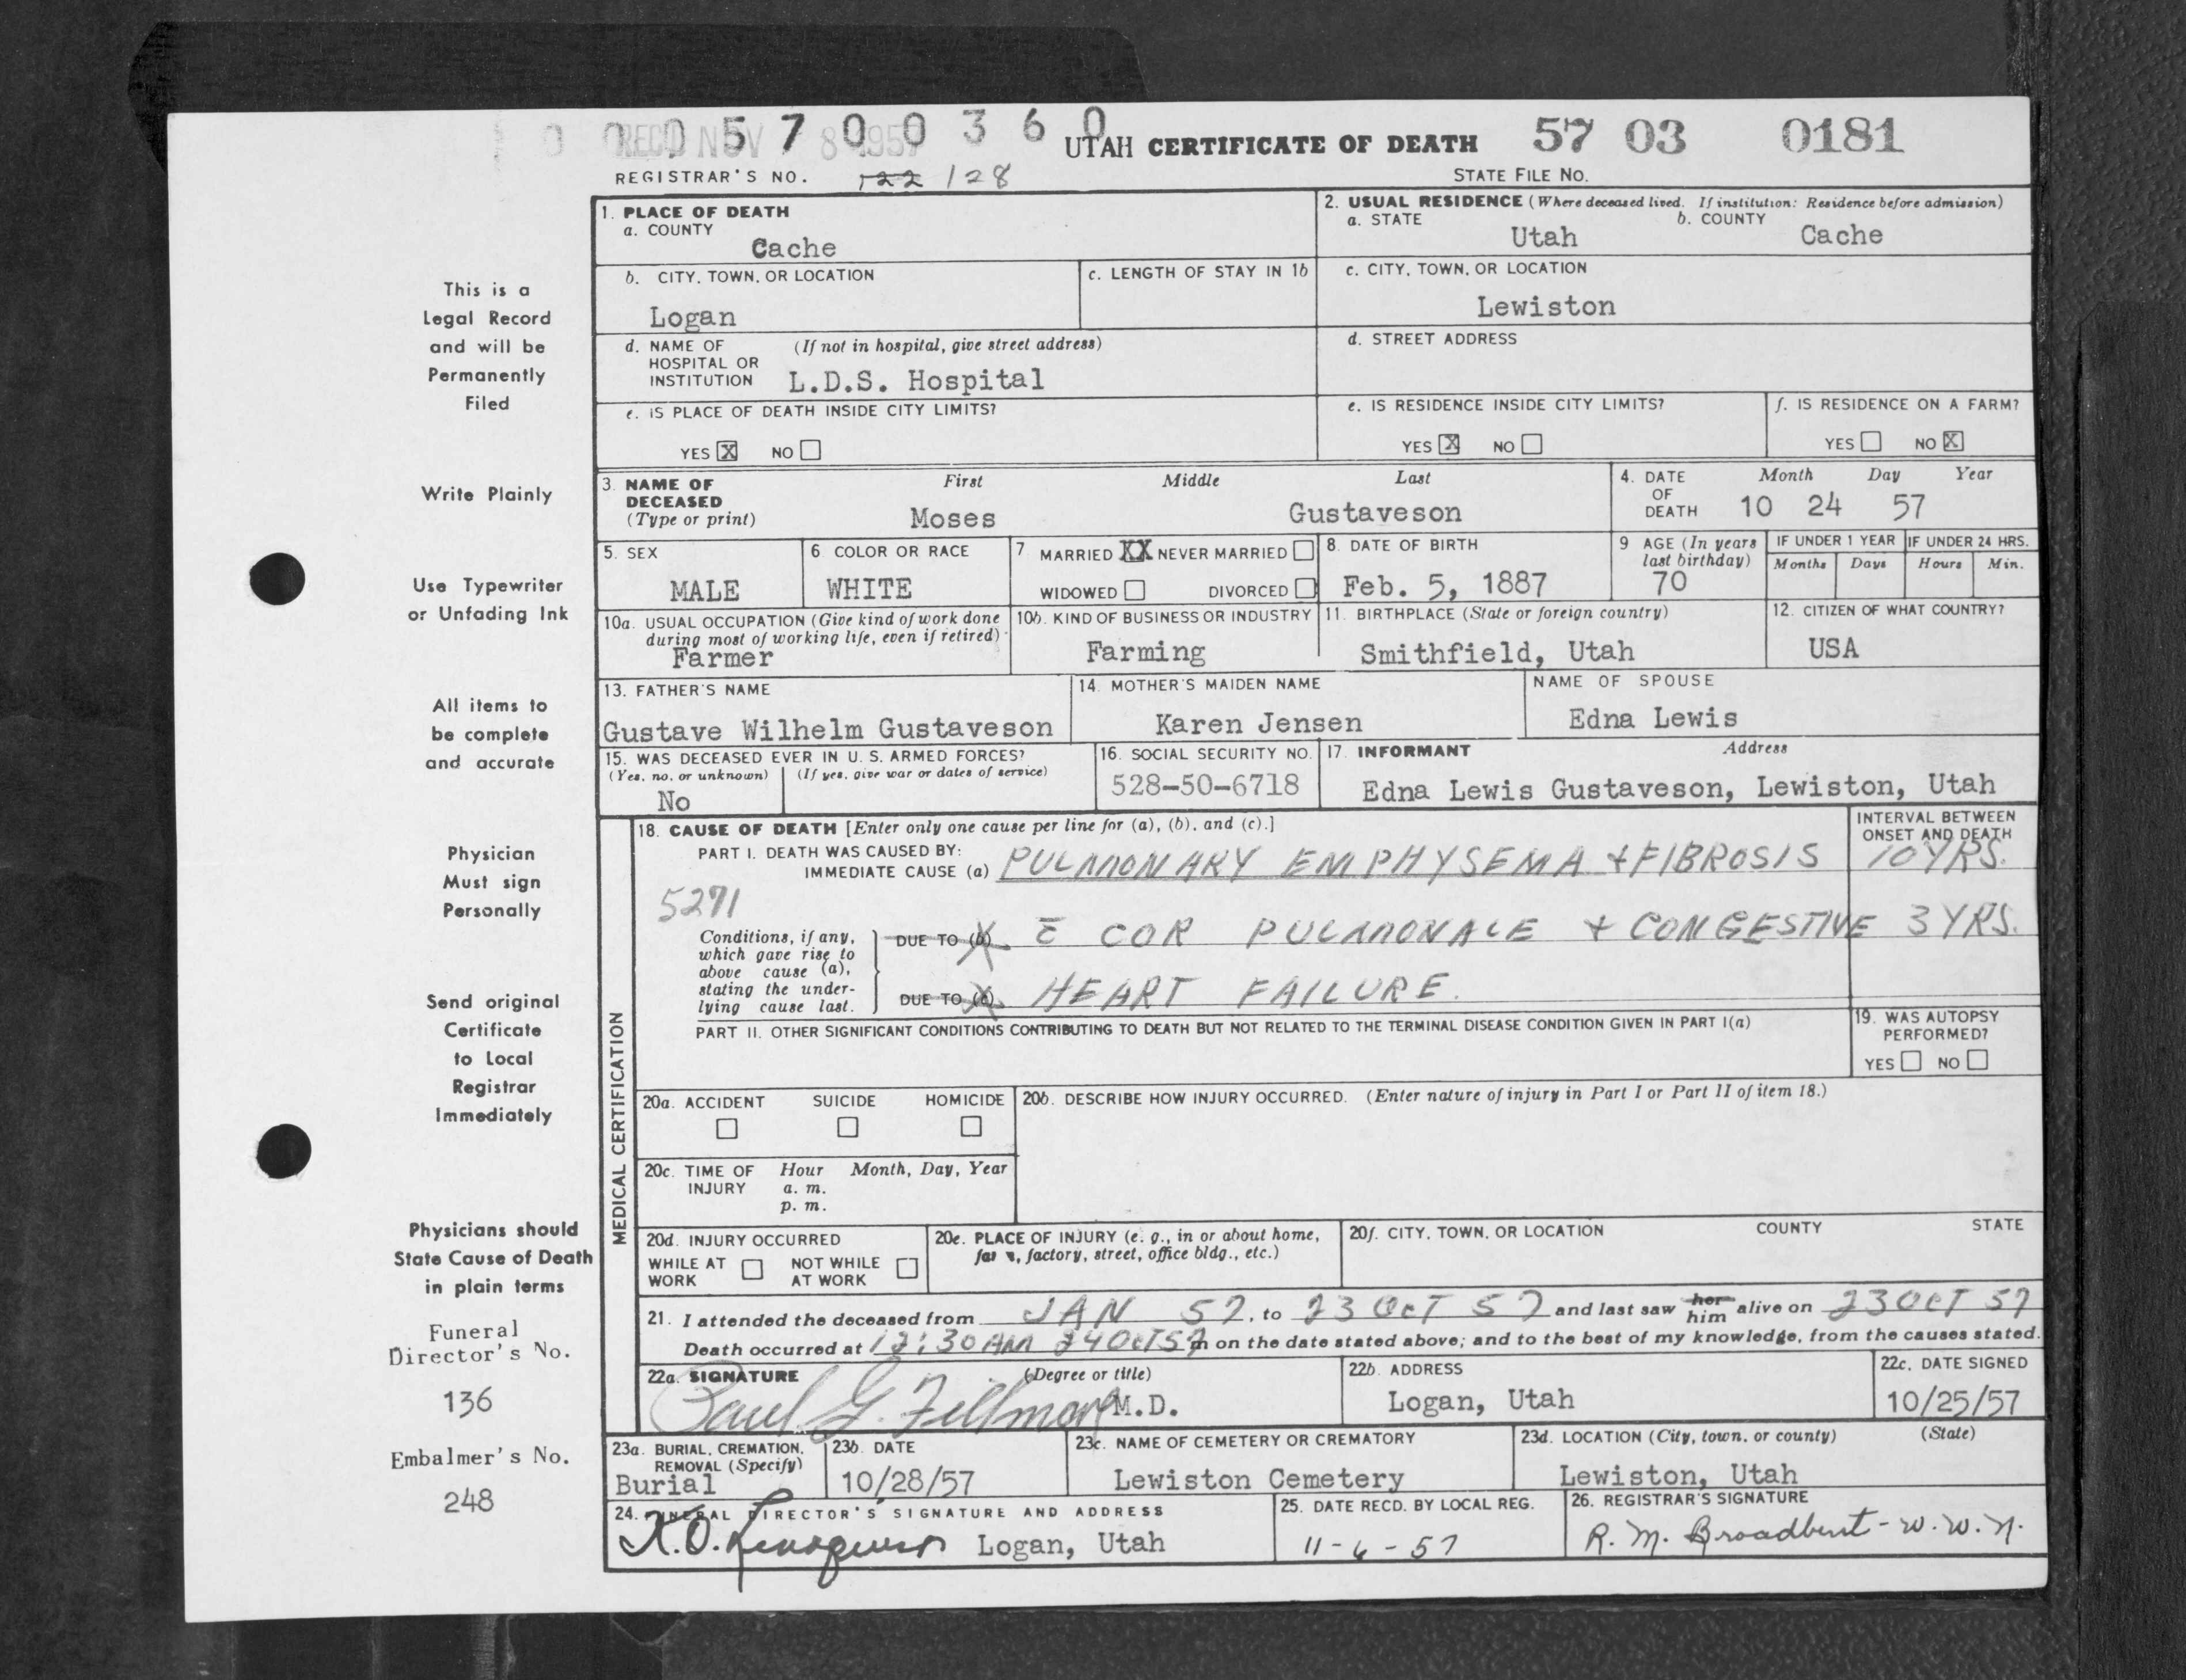 0 0 0 5 7 0 0 3 6 0
REC'D NOV 8 1957
UTAH CERTIFICATE OF DEATH 57 03 0181
REGISTRAR'S NO. 122 128 STATE FILE NO.
This is a
Legal Record
and will be
Permanently
Filed
Write Plainly
Use Typewriter
or Unfading Ink
All items to
be complete
and accurate
Physician
Must sign
Personally
Send original
Certificate
to Local
Registrar
Immediately
Physicians should
State Cause of Death
in plain terms
Funeral
Director's No.
136
Embalmer's No.
248
1. PLACE OF DEATH
a. COUNTY
Cache
2. USUAL RESIDENCE (Where deceased lived. If institution: Residence before admission)
a. STATE b. COUNTY
Utah Cache
b. CITY, TOWN, OR LOCATION
Logan
c. LENGTH OF STAY IN 1b
c. CITY, TOWN, OR LOCATION
Lewiston
d. NAME OF (If not in hospital, give street address)
HOSPITAL OR
INSTITUTION L.D.S. Hospital
d. STREET ADDRESS
e. IS PLACE OF DEATH INSIDE CITY LIMITS?
YES X NO
e. IS RESIDENCE INSIDE CITY LIMITS?
YES X NO
f. IS RESIDENCE ON A FARM?
YES NO X
3. NAME OF First Middle Last
DECEASED
(Type or print) Moses Gustaveson
4. DATE Month Day Year
OF
DEATH 10 24 57
5. SEX
MALE
6. COLOR OR RACE
WHITE
7. MARRIED XX NEVER MARRIED
WIDOWED DIVORCED
8. DATE OF BIRTH
Feb. 5, 1887
9 AGE (In years
last birthday)
70
IF UNDER 1 YEAR IF UNDER 24 HRS.
Months Days Hours Min.
10a. USUAL OCCUPATION (Give kind of work done
during most of working life, even if retired)
Farmer
10b. KIND OF BUSINESS OR INDUSTRY
Farming
11. BIRTHPLACE (State or foreign country)
Smithfield, Utah
12. CITIZEN OF WHAT COUNTRY?
USA
13. FATHER'S NAME
Gustave Wilhelm Gustaveson
14. MOTHER'S MAIDEN NAME
Karen Jensen
NAME OF SPOUSE
Edna Lewis
15. WAS DECEASED EVER IN U. S. ARMED FORCES?
(Yes, no, or unknown) (If yes, give war or dates of service)
No
16. SOCIAL SECURITY NO.
528-50-6718
17. INFORMANT Address
Edna Lewis Gustaveson, Lewiston, Utah
MEDICAL CERTIFICATION
18. CAUSE OF DEATH [Enter only one cause per line for (a), (b), and (c).]
INTERVAL BETWEEN
ONSET AND DEATH
PART I. DEATH WAS CAUSED BY:
IMMEDIATE CAUSE (a) PULMONARY EMPHYSEMA + FIBROSIS 10 YRS.
5271
Conditions, if any,
which gave rise to
above cause (a),
stating the under-
lying cause last.
DUE TO (b) c̄ COR PULMONALE + CONGESTIVE 3 YRS.
DUE TO (c) HEART FAILURE.
PART II. OTHER SIGNIFICANT CONDITIONS CONTRIBUTING TO DEATH BUT NOT RELATED TO THE TERMINAL DISEASE CONDITION GIVEN IN PART I(a)
19. WAS AUTOPSY
PERFORMED?
YES NO
20a. ACCIDENT SUICIDE HOMICIDE
20b. DESCRIBE HOW INJURY OCCURRED. (Enter nature of injury in Part I or Part II of item 18.)
20c. TIME OF Hour Month, Day, Year
INJURY a. m.
p. m.
20d. INJURY OCCURRED
WHILE AT NOT WHILE
WORK AT WORK
20e. PLACE OF INJURY (e. g., in or about home,
farm, factory, street, office bldg., etc.)
20f. CITY, TOWN, OR LOCATION COUNTY STATE
21. I attended the deceased from JAN 57, to 23 OCT 57 and last saw her him alive on 23 OCT 57
Death occurred at 12:30 AM 24 OCT 57 m on the date stated above; and to the best of my knowledge, from the causes stated.
22a. SIGNATURE (Degree or title)
Paul G. Fillmore M.D.
22b. ADDRESS
Logan, Utah
22c. DATE SIGNED
10/25/57
23a. BURIAL, CREMATION,
REMOVAL (Specify)
Burial
23b. DATE
10/28/57
23c. NAME OF CEMETERY OR CREMATORY
Lewiston Cemetery
23d. LOCATION (City, town, or county) (State)
Lewiston, Utah
24. FUNERAL DIRECTOR'S SIGNATURE AND ADDRESS
Logan, Utah
25. DATE RECD. BY LOCAL REG.
11-6-57
26. REGISTRAR'S SIGNATURE
R. M. Broadbent - W. W. N.